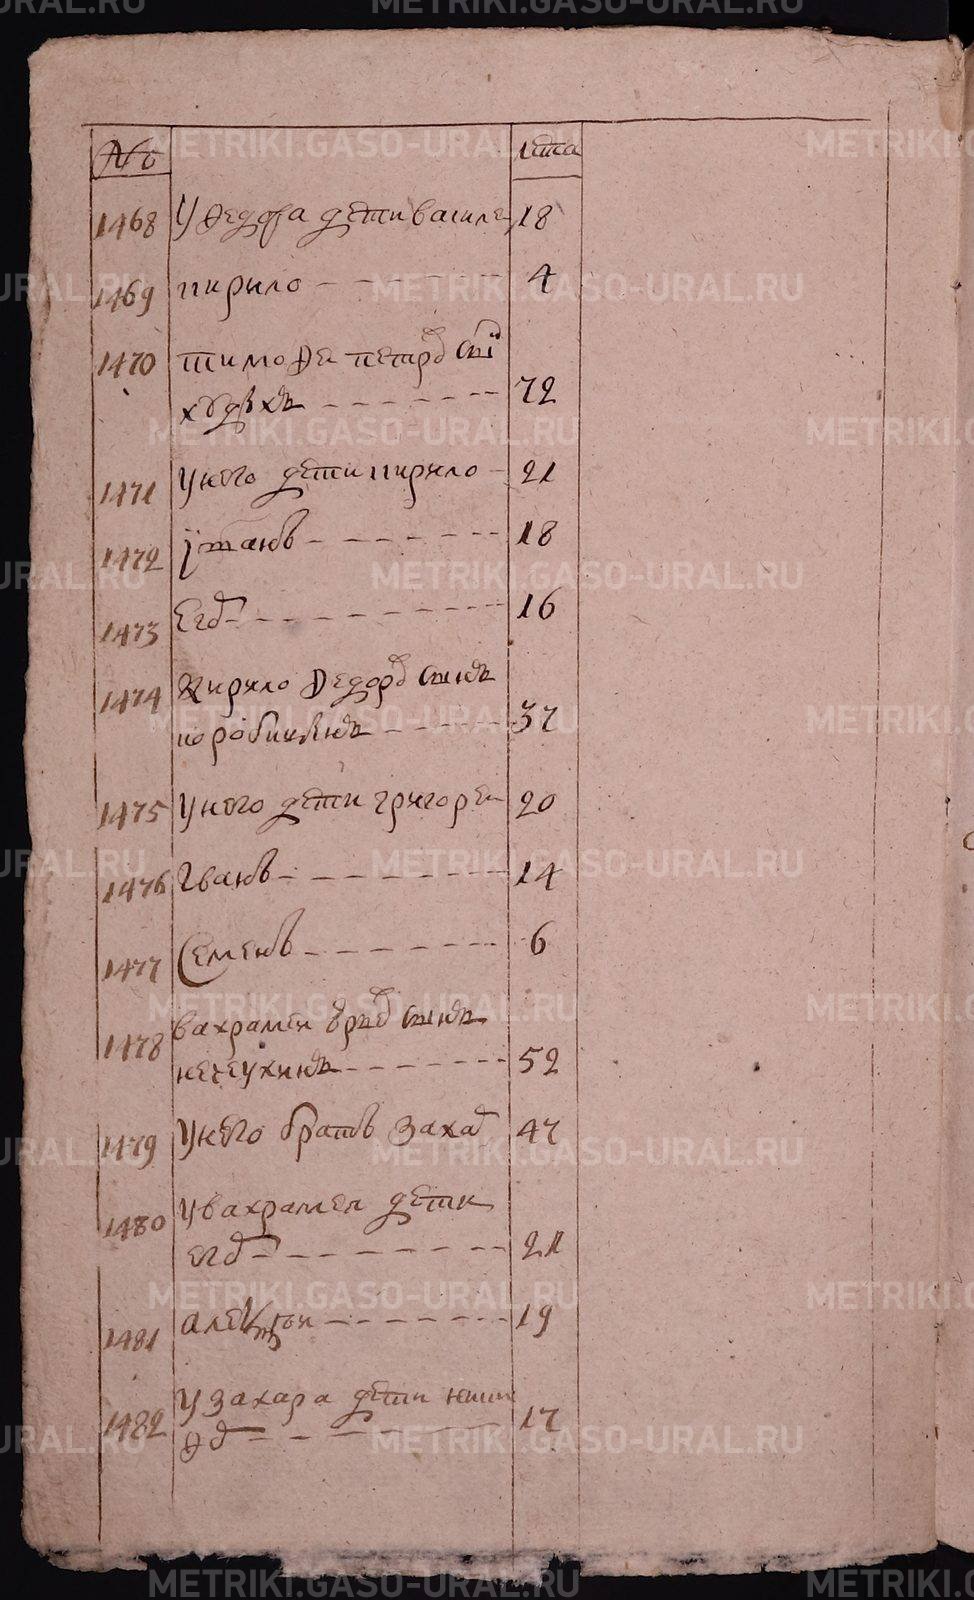 № лѣта
1468 У Ѳедора дети василеи 18
1469 кирило 4
1470 тимоѳеи петровъ снъ
72
1471 У него дети кирило 21
1472 устинъ 18
1473 Егоръ 16
1474 Кирило Ѳедоровъ снъ
37
1475 У него дети григореи 20
1476 Іванъ 14
1477 Семенъ 6
1478 вахрамеи снъ
нечеухинъ 52
1479 У него братъ Захаръ 47
1480 У вахрамея дети
егоръ 21
1481 алексеи 19
1482 У Захара дети
17
METRIKI.GASO-URAL.RU